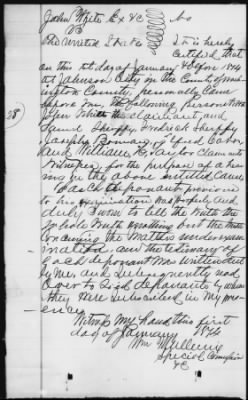 John White Ex &c No
vs
The United States It is hereby
certified that
on this 1st day of January
at Johnson City in the County of Wash
ington County, personally came
before me, the following persons
John White the claimant, and
Sam'l Sherfy, Fredrick Sherfy
Joseph Bowman, Alfred
and William
Witnesses, for the purpose of
in the above entitled cause.
Each deponant previous
to his examination was properly and
duly sworn to tell the truth the
whole truth & nothing but the truth
concerning the matters under exam
ination. and the testimony of
each deponant was written out
by me, and subsequently read
over to said deponants by whom
they were subscribed in my pre
sence
Witness my hand this first
day of January
28
Special Commr
&c